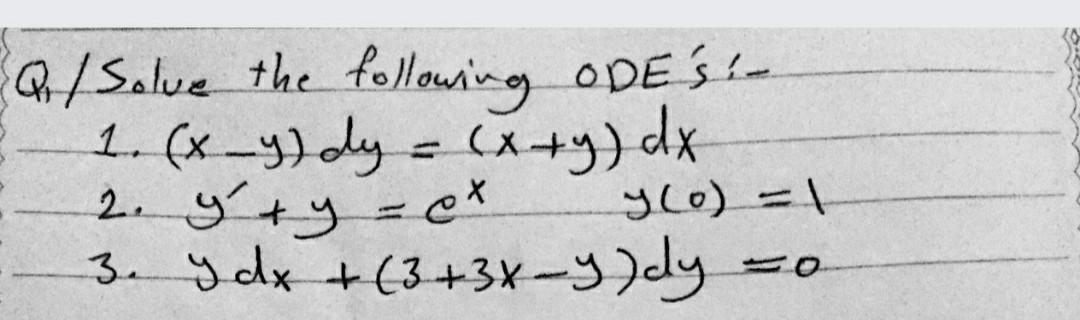 Q1/Solve the following ODE's:-
1. (x-y)dy = (x+y)dx
2. y´+y = e^x y(0)=1
3. y dx + (3+3x-y)dy =0